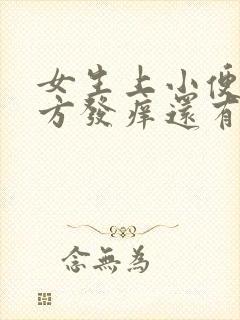 女生上小便
方發痒還有
念無為